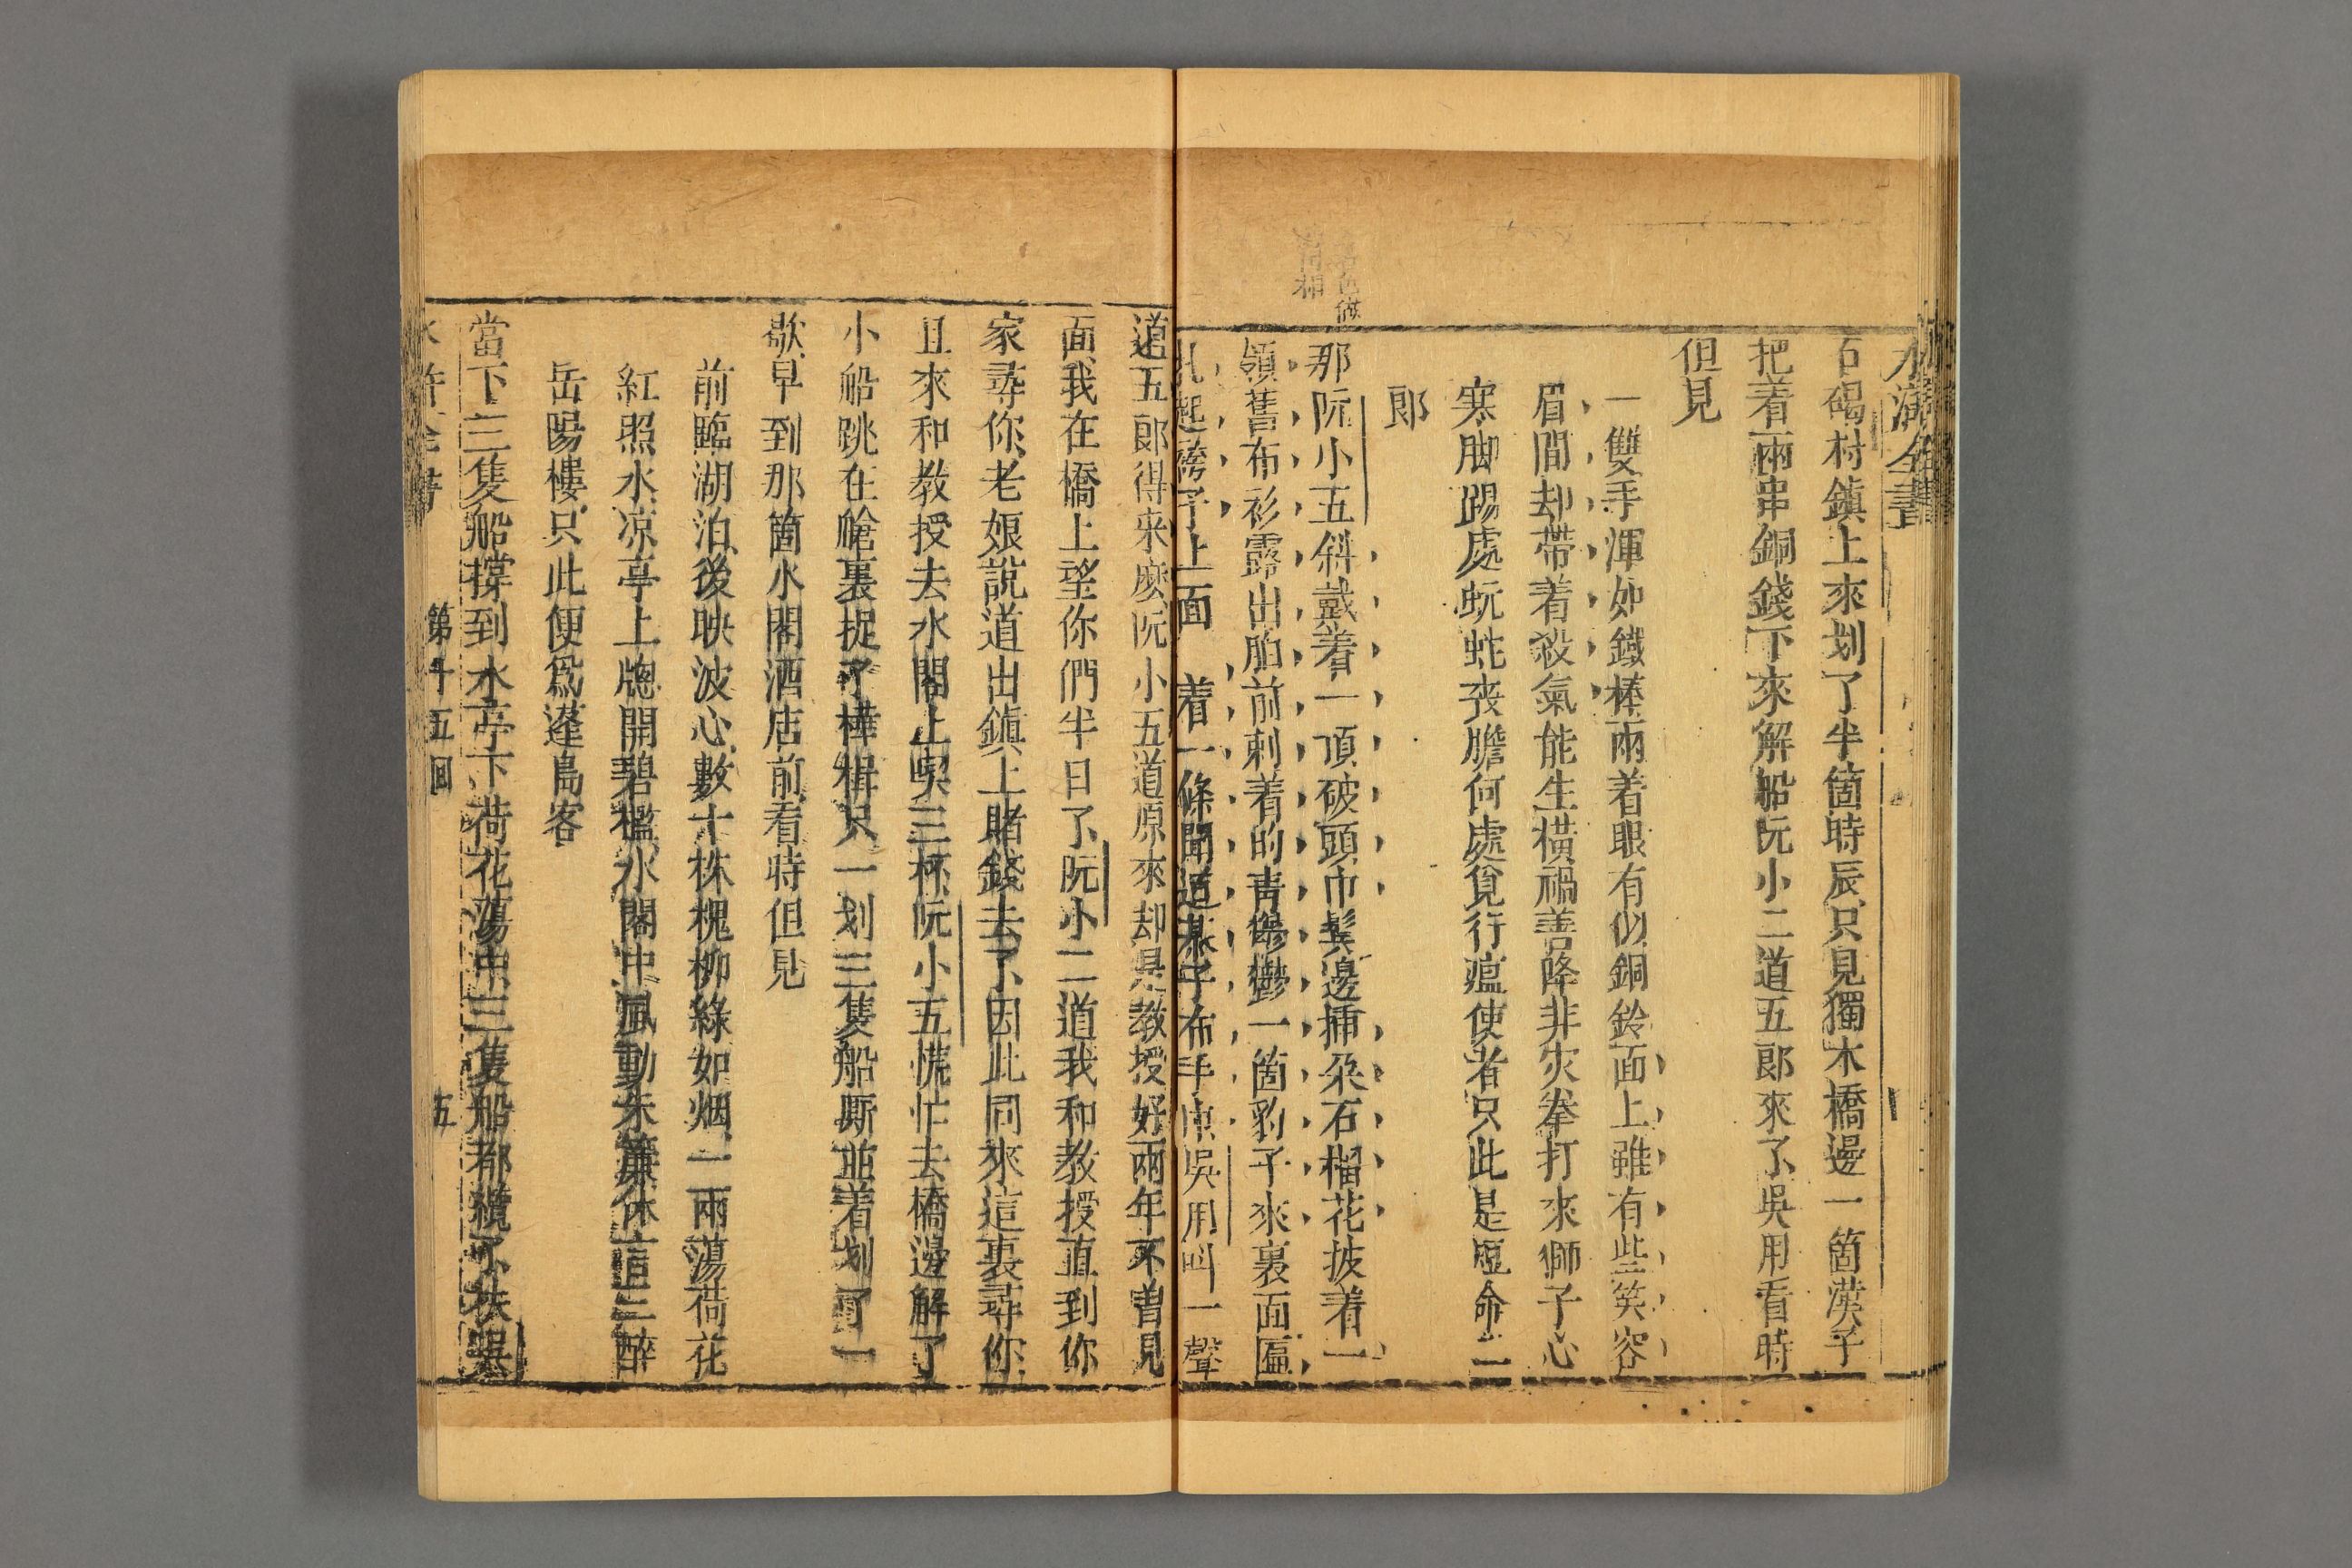 水滸全書
石碣村鎮上來划了半箇時辰只見獨木橋邊一箇漢子
把着兩串銅錢下來解船阮小二道五郎來了吳用看時
但見
一雙手渾如鐵棒兩着眼有似銅鈴面上雖有些笑容
眉間却帶着殺氣能生橫禍善降非灾拳打來獅子心
寒脚踢處蚖蛇丧膽何處覓行瘟使者只此是短命二
郎
那阮小五斜戴着一頂破頭巾鬓邊揷朶石榴花披着一
領舊布衫露出胸前刺着的青鬱鬱一箇豹子來裏面匾
扎起袴子上面 着一條間道棊子布手巾吳用叫一聲
道五郎得來麽阮小五道原來却是教授好兩年不曾見
面我在橋上望你們半日了阮小二道我和教授直到你
家尋你老娘說道出鎮上賭錢去了因此同來這裏尋你
且來和教授去水閣上喫三杯阮小五慌忙去橋邊解了
小船跳在艙裏捉了樺楫只一划三隻船厮並着划了一
歇早到那箇水閣酒店前看時但見
前臨湖泊後映波心數十株槐柳綠如烟一兩蕩荷花
紅照水凉亭上牕開碧檻水閣中風動朱簾休言三醉
岳陽樓只此便爲蓬島客
當下三隻船撑到水亭下荷花蕩中三隻船都纜了扶吳
水滸全書 第十五回 五